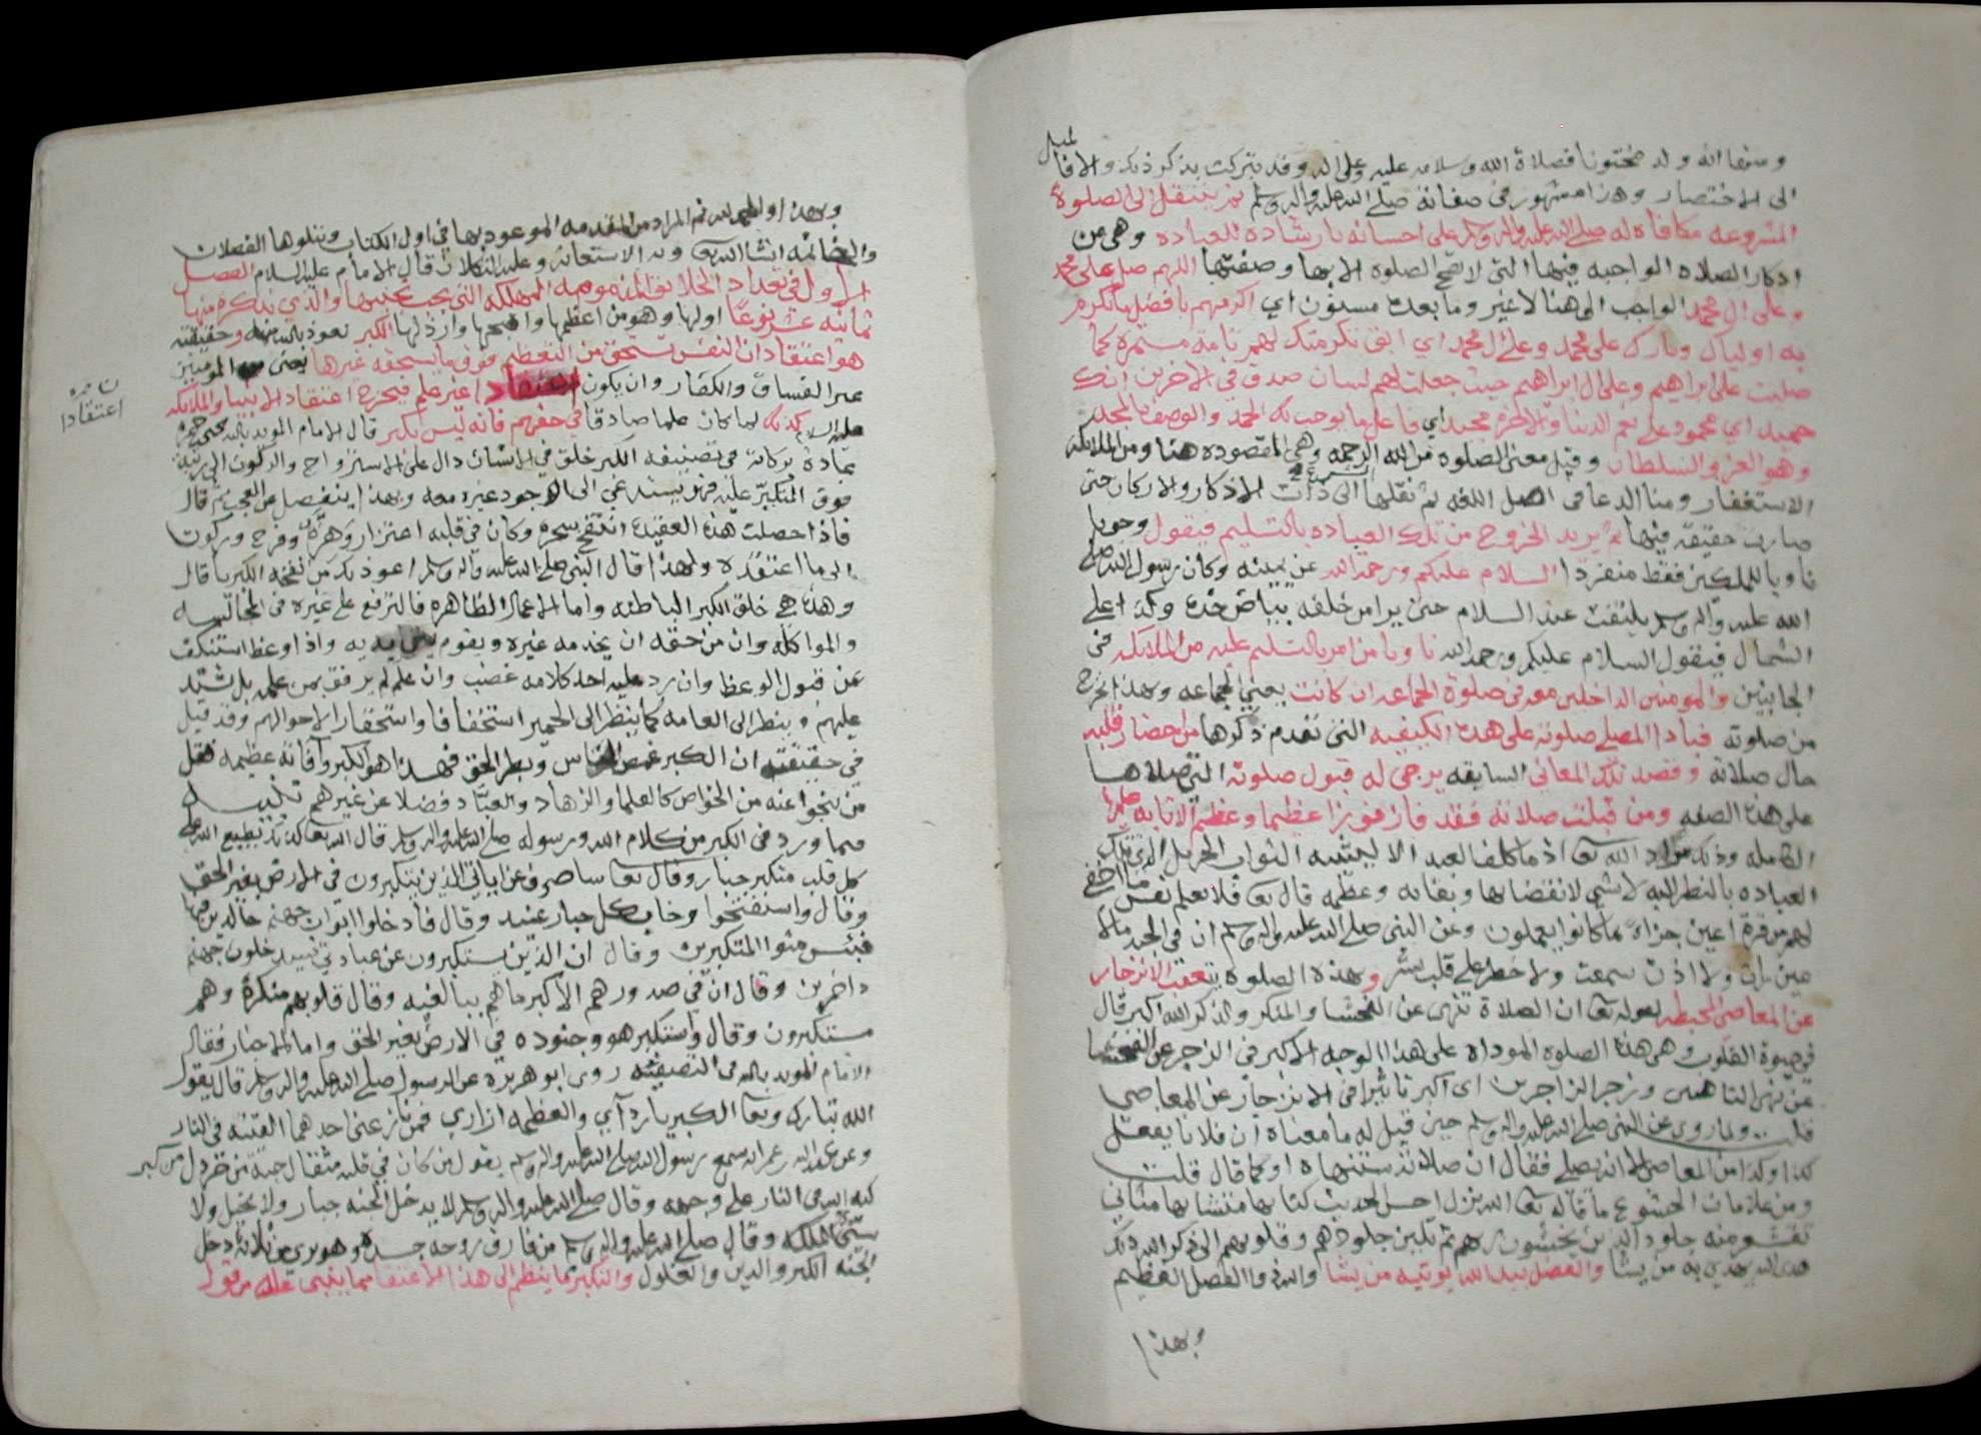 ومنها انه ولد مختونا فصلاة الله وسلامه عليه وعلى اله وقد تبركت بذكر ذلك والا فالميل
الى الاختصار وهذا مشهور في صفاته صلى الله عليه واله وسلم ثم ينتقل الى الصلوة
المشروعه مكافاة له صلى الله عليه واله وسلم على احسانه بارشاده للعباده وهي من
اذكار الصلاه الواجبه فيها التي لا تصح الصلوه الا بها وصفتها اللهم صل على محمد
وعلى ال محمد الواجب الى هنا لا غير وما بعده مسنون اي اكرمهم بافضل ما تكرم
به اولياك وبارك على محمد وعلى ال محمد اي ابق تكرمتك لهم تامة مستمرة كما
صليت على ابراهيم وعلى ال ابراهيم حيث جعلت لهم لسان صدق في الاخرين انك
حميد اي محمود على نعم الدنيا والاخرة مجيد اي فاعل ما يوجب لك الحمد والوصف بالمجد
وهو العز والسلطان وقيل معنى الصلوه من الله الرحمه وهي المقصوده هنا ومن الملائكه
الاستغفار ومنا الدعا في اصل اللغه ثم نقلها الشرع الى ذات الاذكار والاركان حتى
صارت حقيقة فيها ثم يريد الخروج من تلك العباده بالتسليم فيقول وجوبا
ناويا للملكين فقط منفردا السلام عليكم ورحمة الله عن يمينه وكان رسول الله صلى
الله عليه واله وسلم يلتفت عند السلام حتى يرا من خلفه بياض خده وكذا على
الشمال فيقول السلام عليكم ورحمة الله ناويا من امر بالتسليم عليه من الملائكه في
الجانبين والمومنين الداخلين معه في صلوة الجماعه ان كانت يعني الجماعه وبهذا الخرج
من صلوته فاذا المصلي صلوته على هذه الكيفيه التي تقدم ذكرها من احضار قلبه
حال صلاته وقصد تلك المعاني السابقه يرجى له قبول صلوته التي صلاها
على هذه الصفه ومن قبلت صلاته فقد فاز فوزا عظيما وعظيم الاثابه عليها
الكامله وذلك مراد الله تعالى اذ ما كلف العبد الا ليثيبه الثواب الجزيل الذي تلك
العباده بالنظر اليه لا شي لانقضابها وبقائه وعظمه قال تعالى فلا تعلم نفس ما اخفي
لهم من قرة اعين جزاء بما كانوا يعملون وعن النبي صلى الله عليه واله وسلم ان في الجنه مالا
عين رات ولا اذن سمعت ولا خطر على قلب بشر وبهذه الصلوه يتعقب الانزجار
عن المعاصي المحبطه لقوله تعالى ان الصلاة تنهى عن الفحشا والمنكر ولذكر الله اكبر قال
في صفوة القلوب وهي هذه الصلوه الموداه على هذا الوجه الاكبر في الزجر عن الفحشا
عن نهي الناهين وزجر الزاجرين اي اكبر تاثيرا في الانزجار عن المعاصي
قلت ولما روي عن النبي صلى الله عليه واله وسلم حين قيل له ما معناه ان فلانا يفعل
كذا وكذا من المعاصي الا انه يصلي فقال ان صلاته ستنهاه او كما قال قلت
ومن علامات الخشوع ما قاله تعالى الله نزل احسن الحديث كتابا متشابها مثاني
تقشعر منه جلود الذين يخشون ربهم ثم تلين جلودهم وقلوبهم الى ذكر الله ذلك
هدى الله يهدي به من يشا والفضل بيد الله يوتيه من يشا والله ذو الفضل العظيم
وبهذا
وبهذا والحمد لله تم المراد من المقدمه الموعود بها في اول الكتاب ويتلوها الفصلان
والخاتمه انشا الله تعالى وبه الاستعانه وعليه التكلان قال الامام عليه السلام الفصل
الاول في تعداد الخلائق المذمومه المهلكه التي يجب تجنبها والذي نذكره منها
ثمانية عشر نوعا اولها وهو من اعظمها واقبحها وارذلها الكبر نعوذ بالله منه وحقيقته
هو اعتقاد ان النفس تستحق من التعظيم فوق ما يستحقه غيرها يعني من المومنين
غير الفساق والكفار وان يكون اعتقادا غير علم فيخرج اعتقاد الانبيا والملائكه
ن اخره
اعتقادا
عليهم السلام كذلك لما كان علما صادقا في حقهم فانه ليس بكبر قال الامام المويد بالله يحيى بن حمزه
عادة بركاته في تصفيته الكبر خلق في الانسان دال على الاسترواح والركون الى رتبة
فوق المتكبر عليه فهو يستدعي الى وجود غيره معه وبهذا ينفصل عن العجب ثم قال
فاذا حصلت هذه العقيده انتفخ سحره وكان في قلبه اهتزاز وهزة وفرح وركون
الى ما اعتقده ولهذا قال النبي صلى الله عليه واله وسلم اعوذ بك من نفخة الكبريا قال
وهذه هي خلق الكبر الباطنه واما الاعمال الظاهره فالترفع على غيره في المجالسه
والمواكله وان من حقه ان يخدمه غيره ويقوم بين يديه واذا وعظ استنكف
عن قبول الوعظ وان رد عليه احد كلامه غضب وان علم لم يرفق بمن علمه بل شدد
عليهم وينظر الى العامه كما ينظر الى الحمير استخفافا واستحقارا لاحوالهم وقد قيل
في حقيقته ان الكبر غمص الناس وبطر الحق فهذا هو الكبر وآفاته عظيمه فقل
من ينجو عنه من الخواص كالعلما والزهاد والعباد فضلا عن غيرهم تنبيه
فما ورد في الكبر من كلام الله ورسوله صلى الله عليه واله وسلم قال الله تعالى كذلك يطبع الله على
كل قلب متكبر جبار وقال تعالى ساصرف عن اياتي الذين يتكبرون في الارض بغير الحق
وقال واستفتحوا وخاب كل جبار عنيد وقال فادخلوا ابواب جهنم خالدين فيها
فبئس مثوا المتكبرين وقال ان الذين يستكبرون عن عبادتي سيدخلون جهنم
داخرين وقال ان في صدورهم الا كبر ما هم ببالغيه وقال قلوبهم منكرة وهم
مستكبرون وقال واستكبر هو وجنوده في الارض بغير الحق واما الاخبار فقال
الامام المويد بالله في التصفيه روى ابو هريرة عن الرسول صلى الله عليه واله وسلم قال يقول
الله تبارك وتعالى الكبريا ردآي والعظمه ازاري فمن نازعني احدهما القيته في النار
وعن عبد الله بن عمر انه سمع رسول الله صلى الله عليه واله وسلم يقول من كان في قلبه مثقال حبة من خردل من كبر
كبه الله في النار على وجهه وقال صلى الله عليه واله وسلم لا يدخل الجنه جبار ولا بخيل ولا
سيئ الملكه وقال صلى الله عليه واله وسلم من فارق روحه جسده وهو بري من ثلاثة دخل
الجنه الكبر والدين والغلول والتكبر ما ينظم الى هذا الاعتقاد مما ينبي عنه من قول